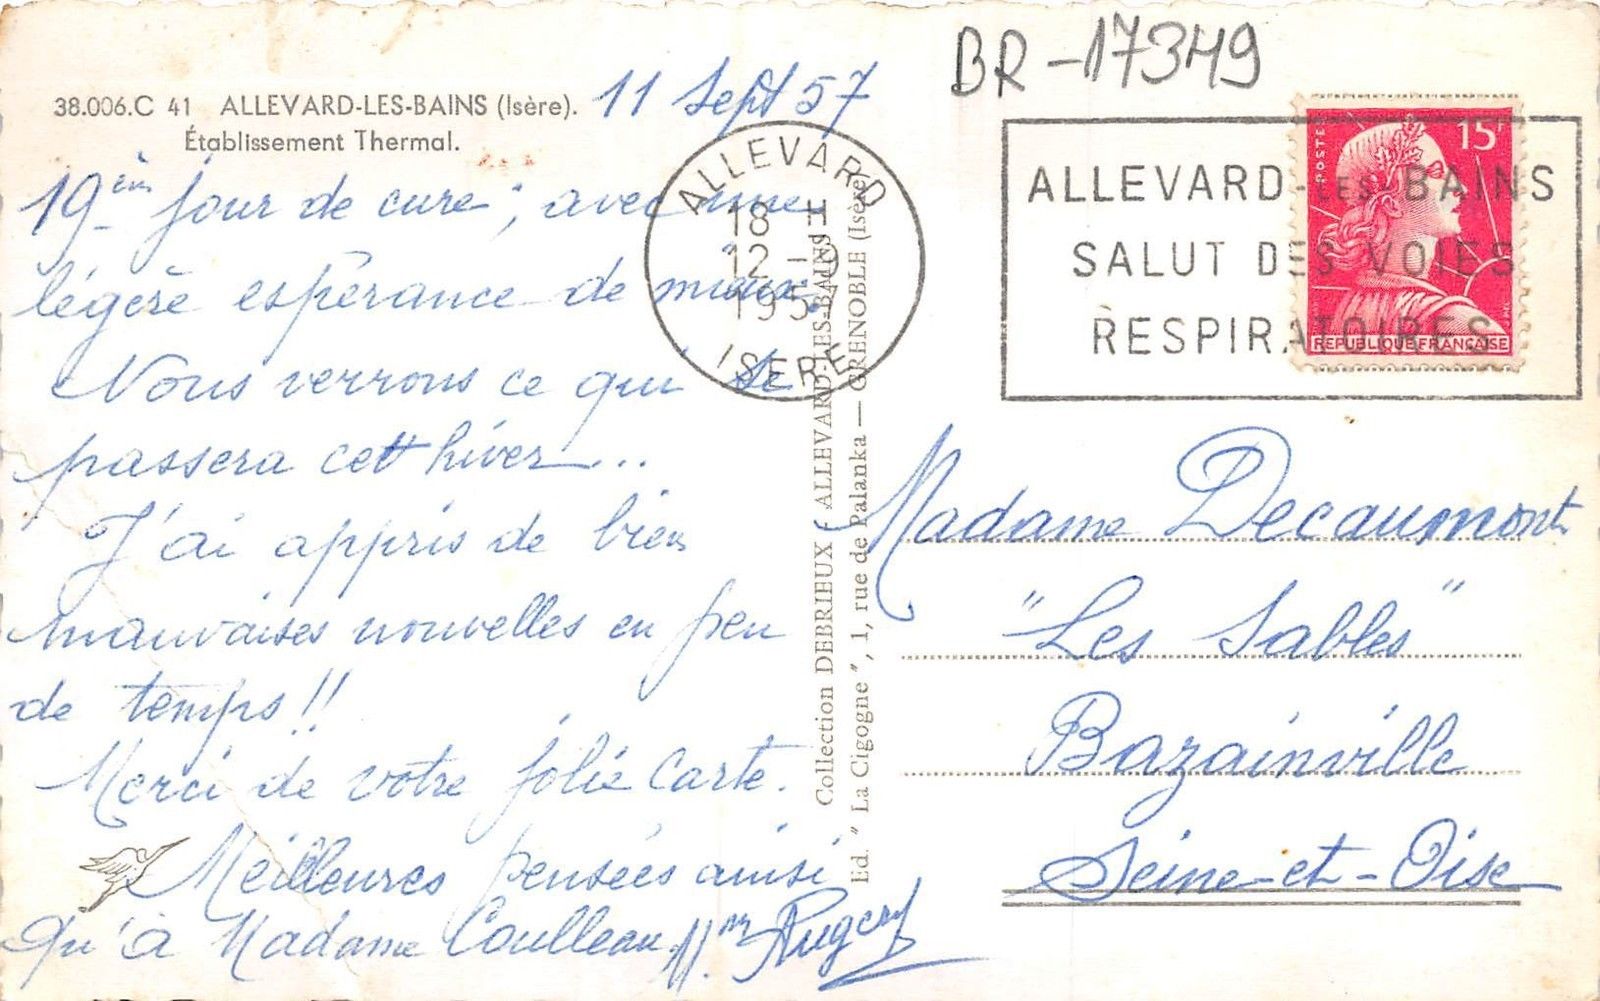 BR-17349
38.006.C 41 ALLEVARD-LES-BAINS (Isère).
Établissement Thermal.
11 Sept 57
19èm jour de cure, avec une
légère espérance de mieux.
Nous verrons ce qui se
passera cet hiver...
J'ai appris de bien
mauvaises nouvelles en peu
de temps!!
Merci de votre jolie Carte.
Meilleures pensées ainsi
Qu'à Madame
ALLEVARD
18 H
12 - 9
195
ISERE
Collection DEBRIEUX ALLEVARD-LES-BAINS
Ed. " La Cigogne ", 1, rue de Palanka — GRENOBLE (Isère
ALLEVARD-LES BAINS
SALUT DES VOIES
RESPIRATOIRES
POSTES
15F
REPUBLIQUE FRANÇAISE
Madame Decaumont
"Les Sables"
Bazainville
Seine-et-Oise